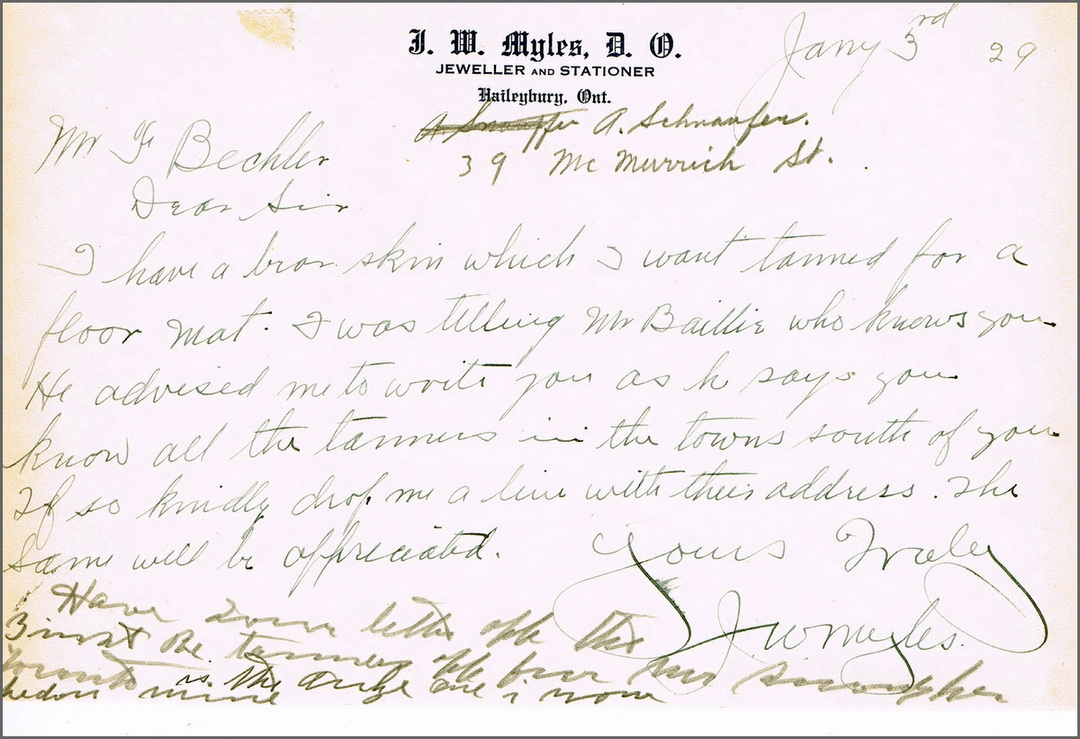 J. W. Myles, D. O.
JEWELLER AND STATIONER
Haileybury, Ont.
Jany 3rd 29
A. Schnaufer.
39 McMurrich St.
Mr Bechler
Dear Sir
I have a bear skin which I want tanned for a
floor mat. I was telling Mr Baillie who knows you
He advised me to write you as he says you
know all the tanners in the towns south of you
If so kindly drop me a line with their address. The
same will be appreciated.
Yours Truly
J. W. Myles.
Have letter the
the
Toronto is the one i now